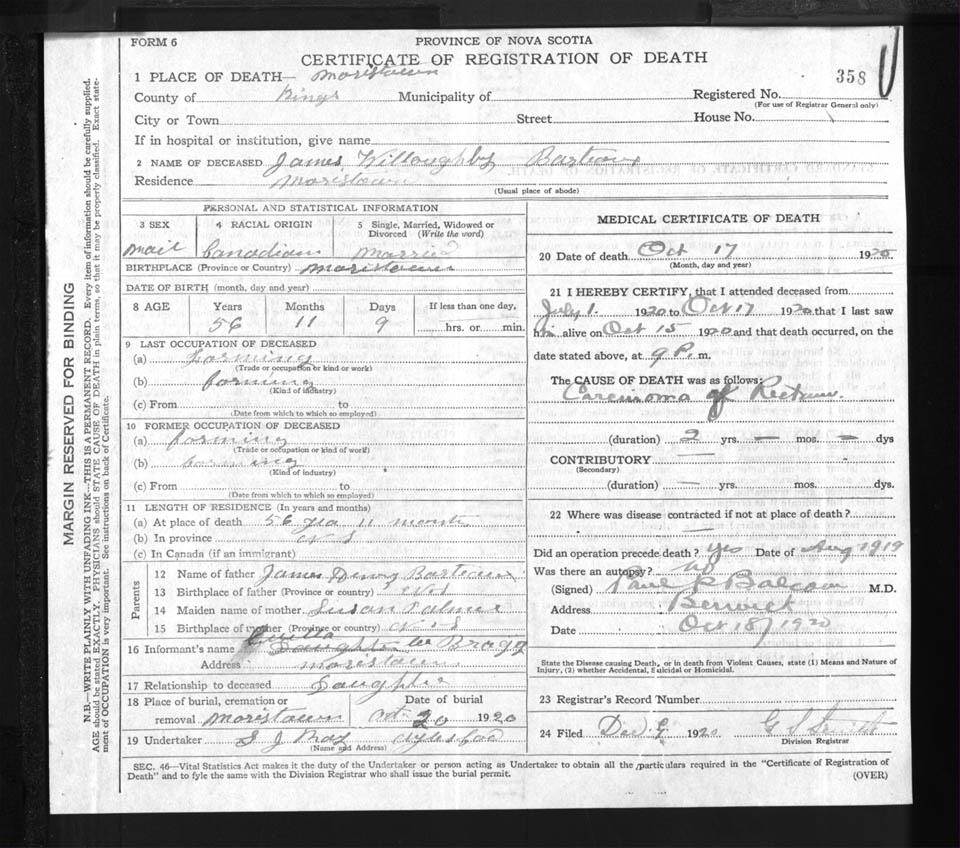 FORM 6
PROVINCE OF NOVA SCOTIA
CERTIFICATE OF REGISTRATION OF DEATH
358
1 PLACE OF DEATH— Moristown
County of Kings Municipality of Registered No.
(For use of Registrar General only)
City or Town Street House No.
If in hospital or institution, give name
2 NAME OF DECEASED James Willoughby Barteaux
Residence Moristown
(Usual place of abode)
PERSONAL AND STATISTICAL INFORMATION
3 SEX 4 RACIAL ORIGIN 5 Single, Married, Widowed or Divorced (Write the word)
Mail Canadian Married
BIRTHPLACE (Province or Country) Moristown
DATE OF BIRTH (month, day and year)
8 AGE Years Months Days If less than one day,
56 11 9 hrs. or min.
9 LAST OCCUPATION OF DECEASED
(a) Farming
(Trade or occupation or kind or work)
(b) farming
(Kind of industry)
(c) From to
(Date from which to which so employed)
10 FORMER OCCUPATION OF DECEASED
(a) farming
(Trade or occupation or kind of work)
(b) farming
(Kind of industry)
(c) From to
(Date from which to which so employed)
11 LENGTH OF RESIDENCE (In years and months)
(a) At place of death 56 yea 11 months
(b) In province N S
(c) In Canada (if an immigrant)
Parents
12 Name of father James Barteaux
13 Birthplace of father (Province or country) N S
14 Maiden name of mother Susan Palmer
15 Birthplace of mother (Province or country) N S
16 Informant's name Bragg
Address Moristown
17 Relationship to deceased Daughter
18 Place of burial, cremation or Date of burial
removal Morestown Oct 20 1920
19 Undertaker S J Aylesford
(Name and Address)
MEDICAL CERTIFICATE OF DEATH
20 Date of death Oct 17 1920
(Month, day and year)
21 I HEREBY CERTIFY, that I attended deceased from
July 1. 1920 to Oct 17 1920 that I last saw
him alive on Oct 15 1920 and that death occurred, on the
date stated above, at 9 P. m.
The CAUSE OF DEATH was as follows:
Carcinoma of Rectum.
(duration) 2 yrs. — mos. — dys
CONTRIBUTORY —
(Secondary)
(duration) — yrs. mos. dys.
22 Where was disease contracted if not at place of death?
—
Did an operation precede death? yes Date of Aug 1919
Was there an autopsy? no
(Signed) Balcom M.D.
Address Berwick
Date Oct 18 / 1920
State the Disease causing Death, or in death from Violent Causes, state (1) Means and Nature of
Injury, (2) whether Accidental, Suicidal or Homicidal.
23 Registrar's Record Number
24 Filed Dec 9 1920
Division Registrar
SEC. 46—Vital Statistics Act makes it the duty of the Undertaker or person acting as Undertaker to obtain all the particulars required in the "Certificate of Registration of
Death" and to fyle the same with the Division Registrar who shall issue the burial permit.
(OVER)
MARGIN RESERVED FOR BINDING
N.B.—WRITE PLAINLY WITH UNFADING INK—THIS IS A PERMANENT RECORD. Every item of information should be carefully supplied.
AGE should be stated EXACTLY. PHYSICIANS should STATE CAUSE OF DEATH in plain terms, so that it may be properly classified. Exact state-
ment of OCCUPATION is very important. See instructions on back of Certificate.